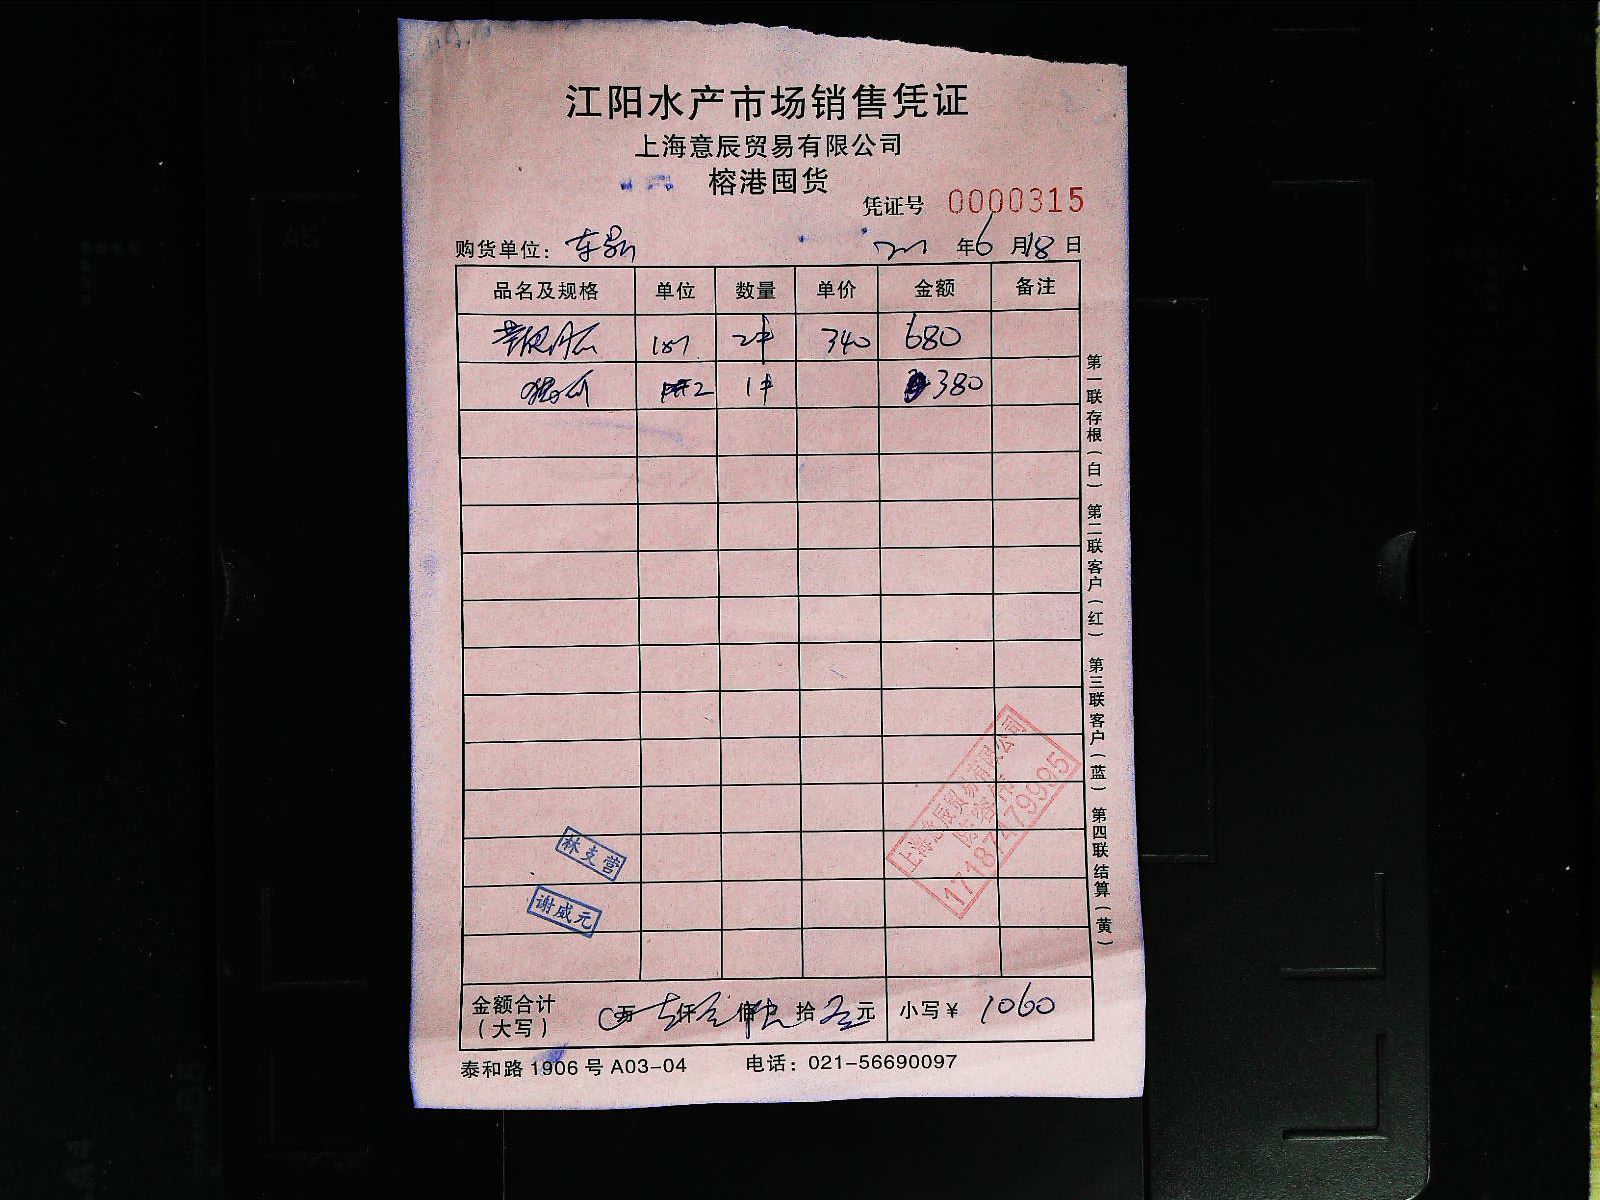 江阳水产市场销售凭证
上海意辰贸易有限公司
榕港囤货
凭证号 0000315
购货单位： 年6月18日
品名及规格 单位 数量 单价 金额 备注
187 2件 340 680
2 1件 380
金额合计 万 仟 佰 拾 元 小写￥ 1060
（大写）
泰和路 1906 号 A03-04 电话：021-56690097
第一联存根（白） 第二联客户（红） 第三联客户（蓝） 第四联结算（黄）
上海意辰贸易有限公司
17187179995
林支营
谢威元